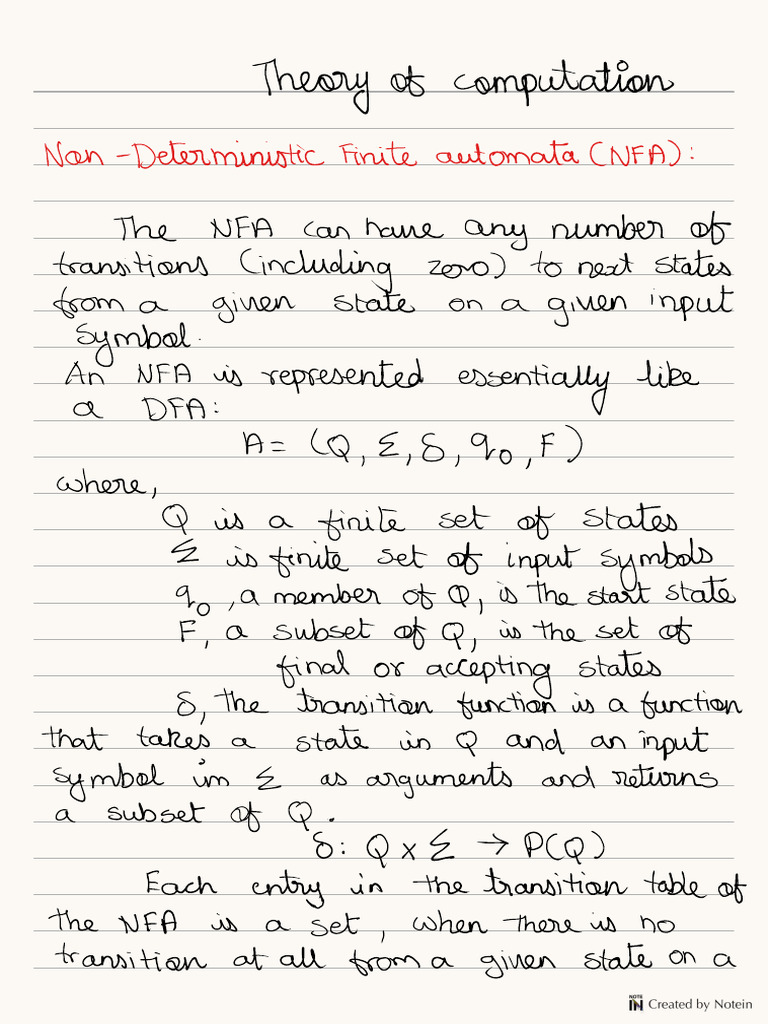 Theory of computation
Non-Deterministic Finite automata (NFA):
The NFA can have any number of
transitions (including zero) to next states
from a given state on a given input
symbol.
An NFA is represented essentially like
a DFA:
A = (Q, Σ, δ, q₀, F)
where,
Q is a finite set of states
Σ is finite set of input symbols
q₀, a member of Q, is the start state
F, a subset of Q, is the set of
final or accepting states
δ, the transition function is a function
that takes a state in Q and an input
symbol in Σ as arguments and returns
a subset of Q.
δ: Q × Σ → P(Q)
Each entry in the transition table of
the NFA is a set, when there is no
transition at all from a given state on a
NOTE IN Created by Notein